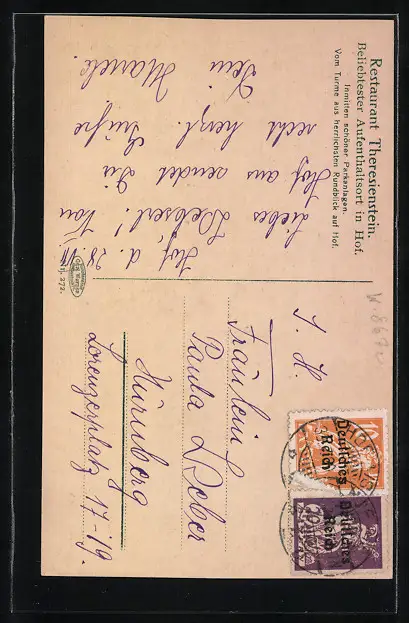 Restaurant Theresienstein.
Beliebtester Aufenthaltsort in Hof.
Inmitten schöner Parkanlagen.
Vom Turme aus herrlichsten Rundblick auf Hof.
Hof, d. 28. VII.
Liebes Weberl! Von
Hof aus sendet Dir
recht herzl. Grüße
Dein
S. H.
Fräulein
Paula Weber
Nürnberg
Lorenzerplatz 17-19.
Deutsches
Reich
Deutsches
Reich
HOF